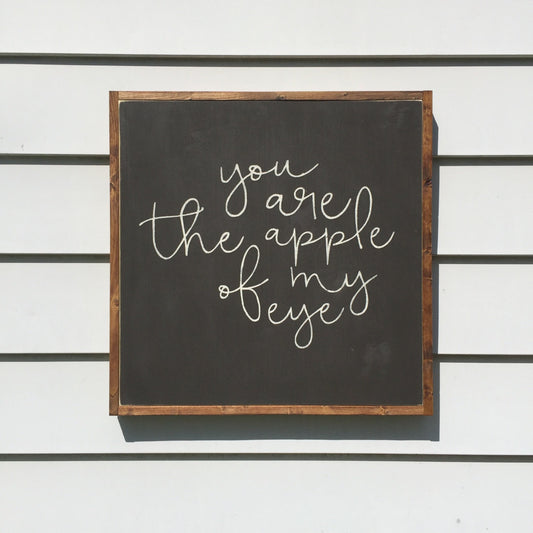 you
are
the apple
of my
eye